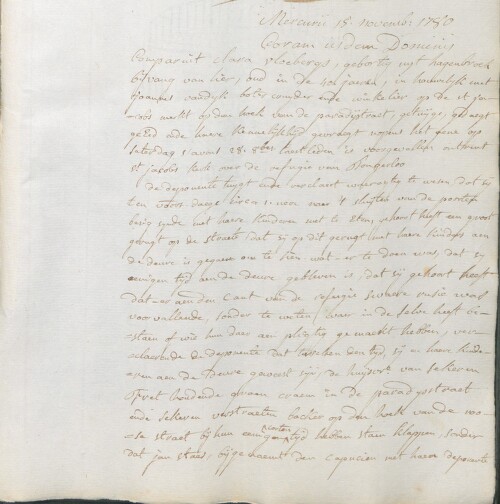 Mercurii 15 novemb: 1780
Coram iisdem Dominis
Compariit clara vloebergs, geboortig uyt hagenbroek
bijvang van lier, oud in de 40 jaeren, in houwelijk met
joannes vandijk boter vender ende winkelier op de st ja-
cobs merkt op den hoek van de paradijstraet, getuyge, gedaegt
geëd ende haere kennelijkheyd gevraegt nopens het gene op
saterdag s'avons 28 8ber lestleden is voorgevallen ontrent
st jacobs kerk aen de refugie van Tongerloo
De deponente tuygt ende verclaert waerachtig te wesen dat sij
ten voors. daege seven uren voor 't sluyten van de poorten
besig sijnde met haere kinderen met te eten, gehoort heeft een groot
gerugt op de straete, dat sij op dit gerugt met haere kinders aen
de deure is gegaen om te sien wat er te doen was, dat sij
eenigen tijd aen de deure gebleven is, dat sij gehoort heeft
dat er aen den cant van de refugie swaere rusie was
voorvallende, sonder te weten waer in de selve heeft be-
staen of wie hun daer aen pligtig gemaekt hebben, ver-
claerende de deponente dat tusschen den tijd, sij en haere kinde-
ren aen de deure geweest sijn, de huysvr. van sekeren
stovet houdende eenen craem in de paradysstraet
ende sekeren verstraeten backer op den hoek van de ro-
-se straet bij hun eenigen tijd hebben staen klappen, sonder
dat jan staes, bijgenaemt den capucien met haere deponente